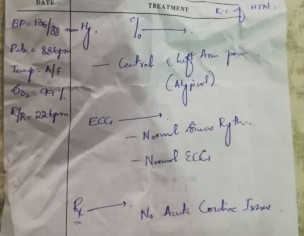 DATE TREATMENT
K/c of HTN
BP = 136/88 mmHg. c/o →
Pulse = 88bpm
— Central & Left Arm pain
Temp = A/F
(Atypical)
R/R = 22 bpm
ECG →
— Normal Sinus Rythm.
— Normal ECG
Rx → No Acute Cardiac Issue.